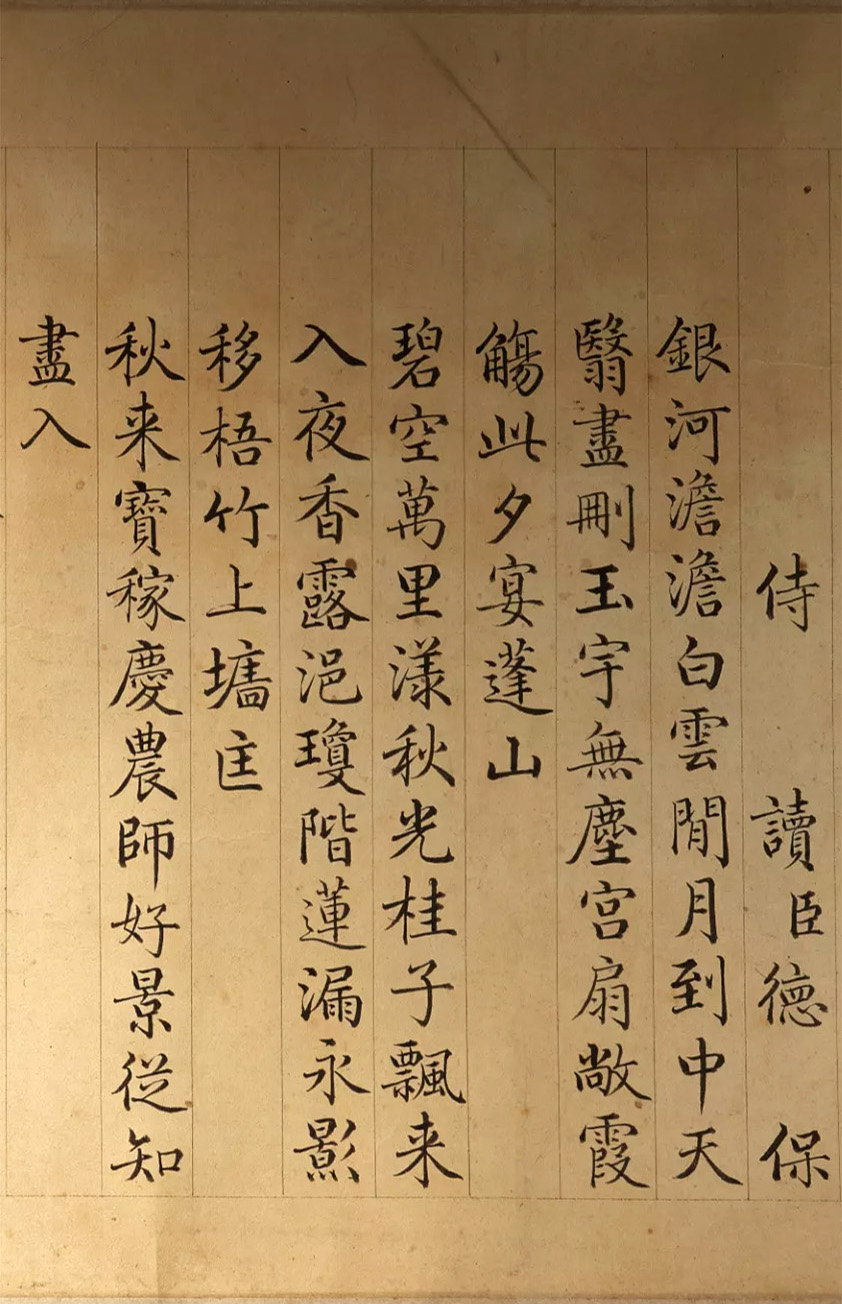 侍讀臣德保
銀河澹澹白雲閒月到中天
翳盡刪玉宇無塵宮扇敞霞
觴此夕宴蓬山
碧空萬里漾秋光桂子飄来
入夜香露浥瓊階蓮漏永影
移梧竹上墻匡
秋来寶稼慶農師好景從知
盡入